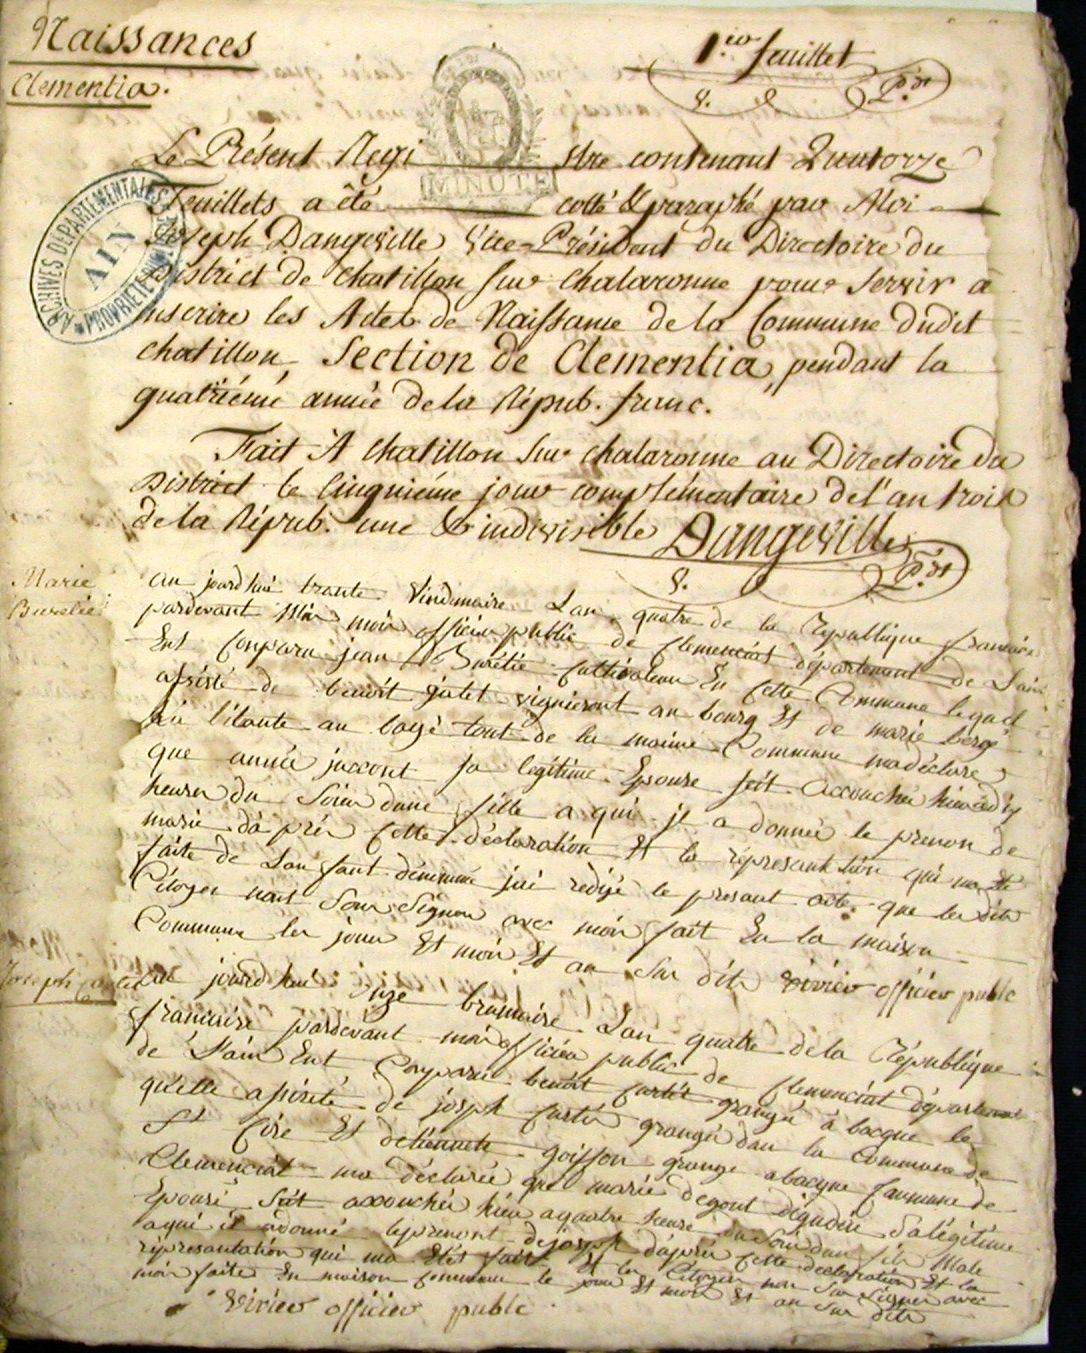 Naissances
Clementia.
1.er feuillet
P.dt
MINUTE
ARCHIVES DÉPARTEMENTALES
AIN
PROPRIÉTÉ PUBLIQUE
Le Présent Regi stre contenant Quatorze
Feuillets a été cotté & paraphé par Aloi
Joseph Dangeville Vice-Président du Directoire du
District de Chatillon sur Chalaronne pour servir a
Inscrire les Actes de Naissance de la Commune dudit
Chatillon, Section de Clementia, pendant la
quatriéme année de la Répub. franc.
Fait A Chatillon sur Chalaronne au Directoire du
District le Cinquiéme jour complémentaire de l'an trois
de la Répub. une & indivisible Dangeville
P.dt
Marie
Burelié
au jourdhui trante Vindemaire Lan quatre de la Republique francaise
pardevant moi officier public de Clemenciat département de Lain
Ent Comparu jean Burétié Cultivateur En Cette Commune lequel
asisté de benoit jalet vigneront au bourg Et de marie
tout de la maime Commune madéclaré
que anné jaccont sa legitime Epouse sest accouchée hier a dix
heures du Soir dune fille a qui il a donnée le prenon de
marie daprés Cette déclaration Et la répresantation qui ma été
faite de Lanfant dénommé jai redigé le presant acte que les dits
Citoyen nont Sour Signer avec moi fait En la maison
Commune les jour Et mois Et an Sur dits vivier officier public
Joseph Curtet
au jourdhui onze brumaire Lan quatre de la République
francaise pardevant moi officier public de Clemenciat département
de Lain Ent Comparu benoit Curtet grangé à bacque le
quelle asisté de josph Curtét grangé dan la Commune de
St Cire Et détiennete goisson grange abacque Commune de
Clemenciat ma déclarée que marie degout sa légitime
Epouse sest accouchée hier aquatre heure du Soir dun fils Male
aqui il adonné leprenont dejoseph daprés Cette declaration Et la
répresantation qui ma étés faite Et les Citoyen non Sur Signer avec
moi faite En maison Commune le jour Et mois Et an Sur dits
vivier officier public